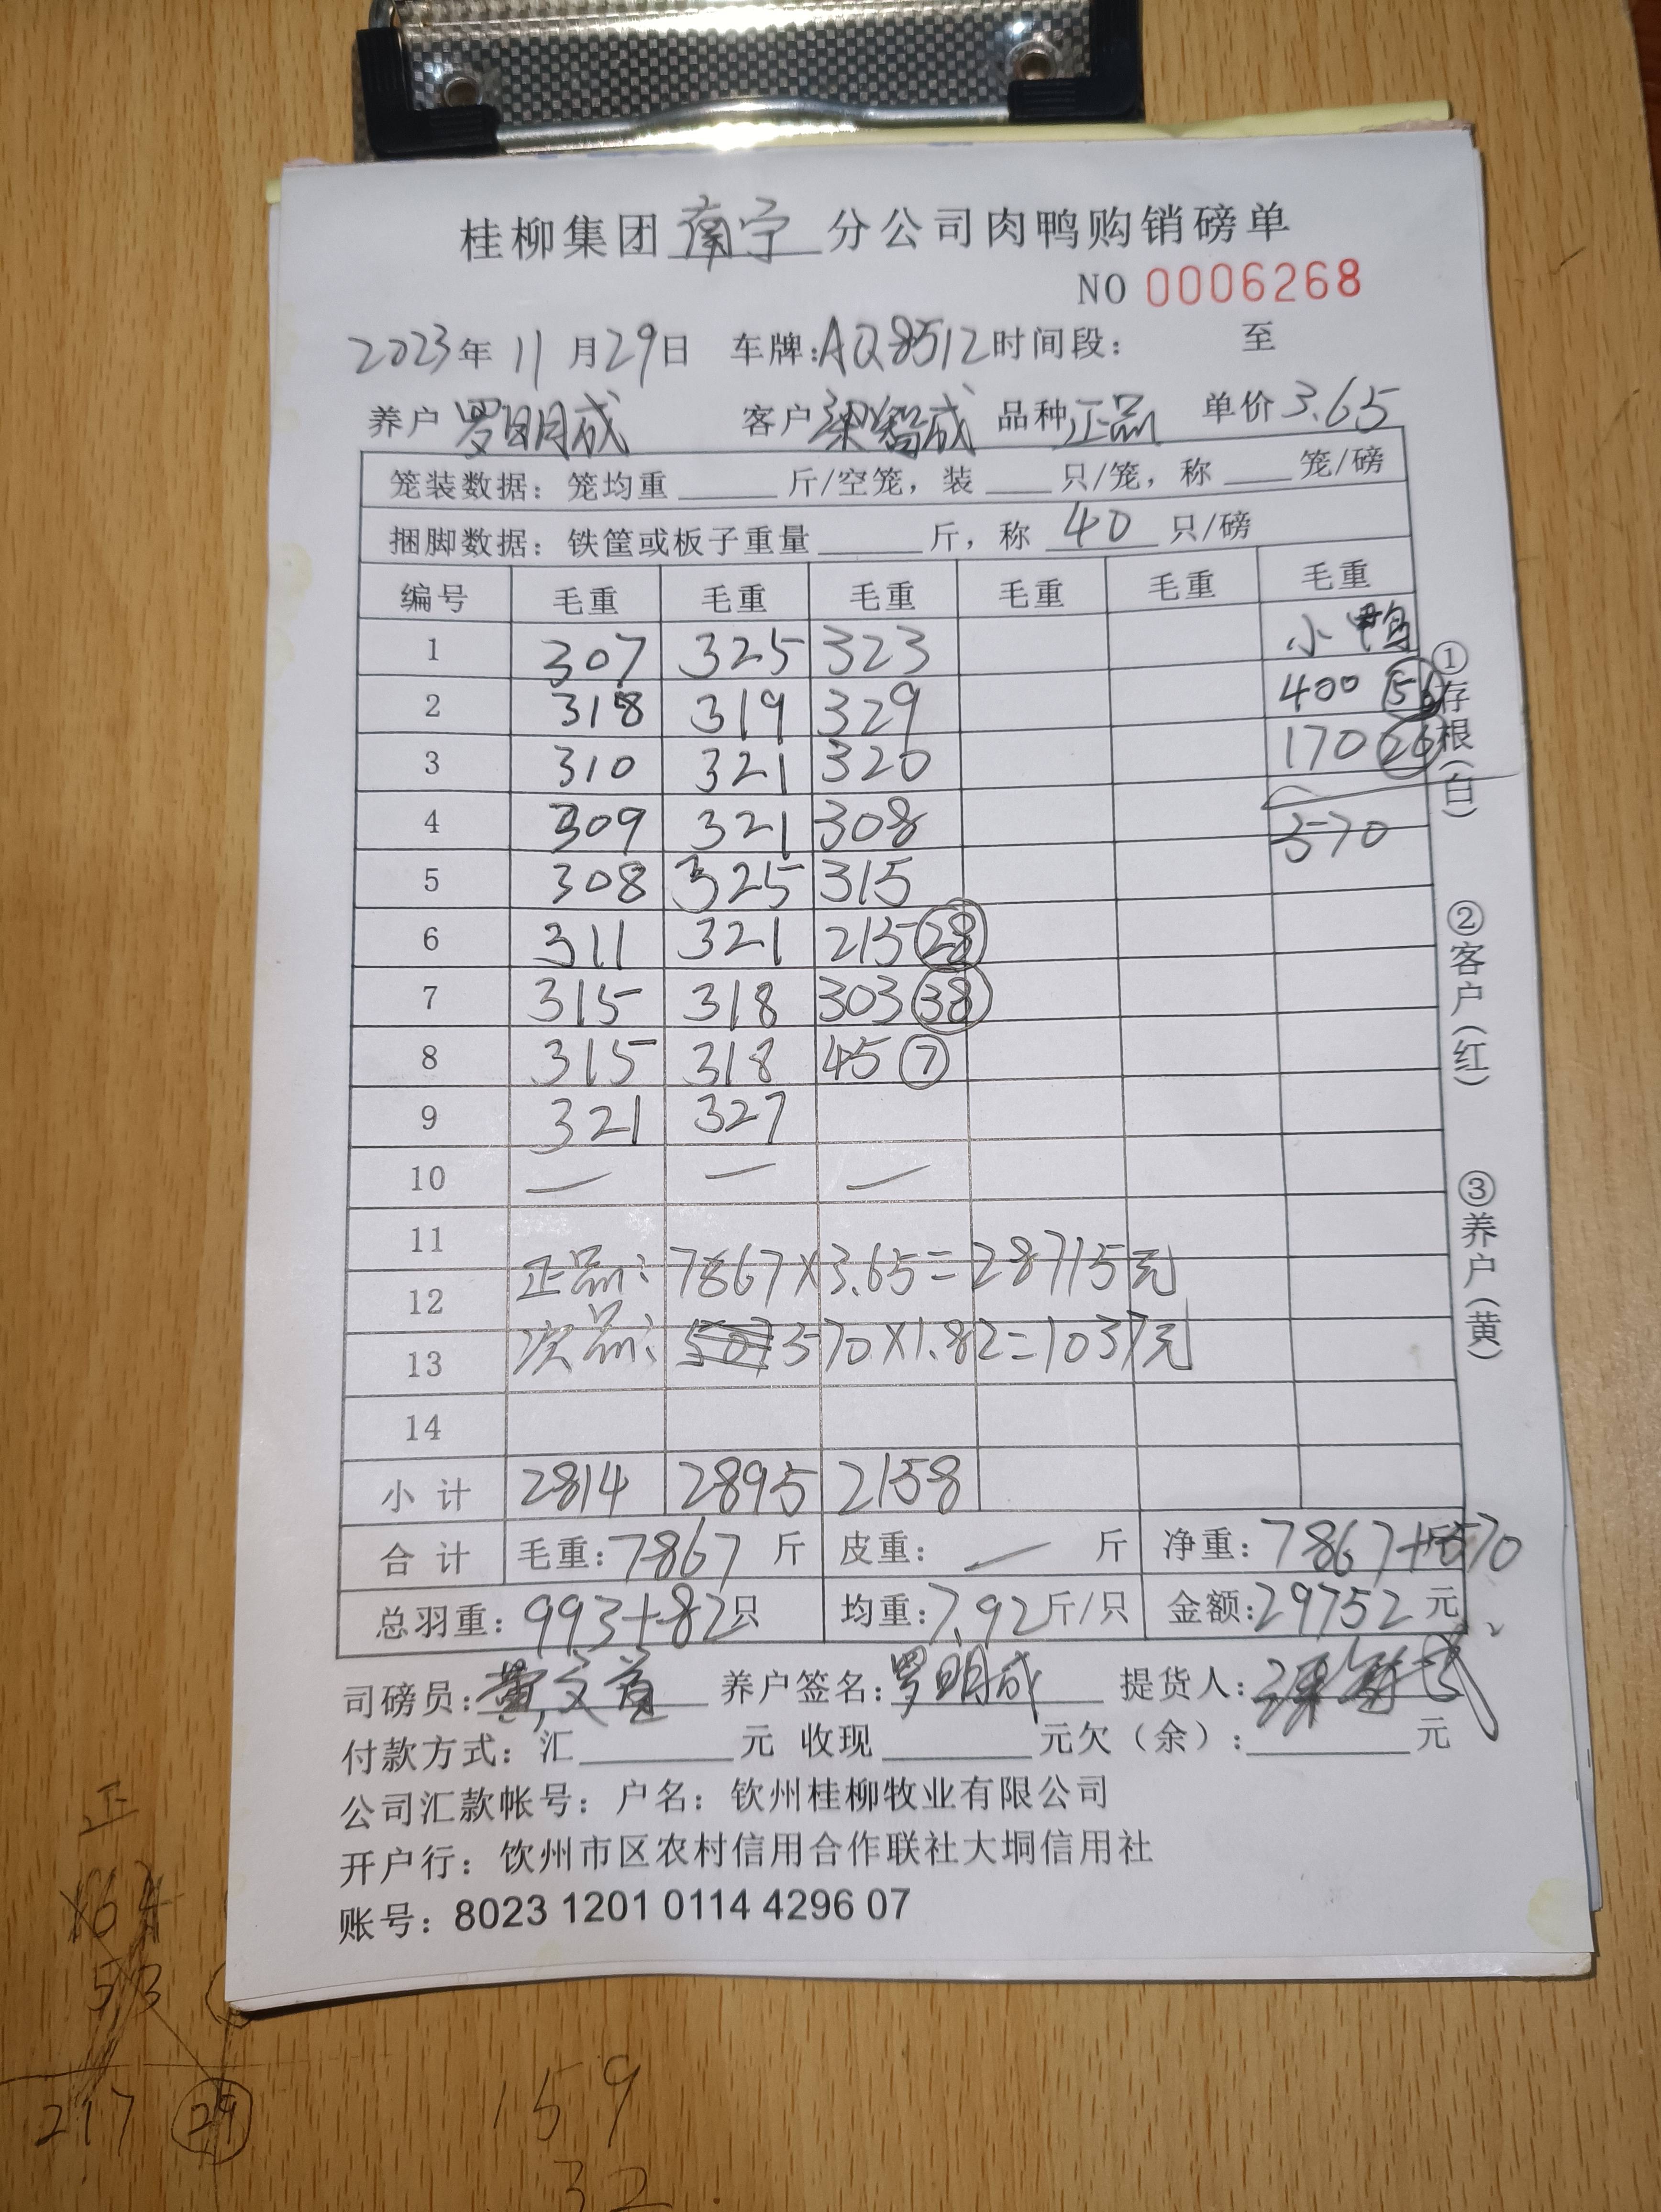 桂柳集团 南宁 分公司肉鸭购销磅单
NO 0006268
2023年 11 月29日 车牌:AQ8512 时间段: 至
养户 罗明成 客户 梁智成 品种 正品 单价 3.65
笼装数据: 笼均重 斤/空笼, 装 只/笼, 称 笼/磅
捆脚数据: 铁筐或板子重量 斤, 称 40 只/磅
编号 毛重 毛重 毛重 毛重 毛重 毛重
1 307 325 323 小鸭
2 318 319 329 400 56
3 310 321 320 170 26
4 309 321 308 570
5 308 325 315
6 311 321 215 28
7 315 318 303 38
8 315 318 45 7
9 321 327
10 — — —
11
12 正品: 7867×3.65=28715元
13 次品: 570×1.82=1037元
14
小计 2814 2895 2158
合计 毛重:7867 斤 皮重: — 斤 净重: 7867+570
总羽重: 993+82只 均重:7.92斤/只 金额:29752 元
司磅员: 养户签名:罗明成 提货人:梁智成
付款方式: 汇 元 收现 元欠(余): 元
公司汇款帐号: 户名: 钦州桂柳牧业有限公司
开户行: 钦州市区农村信用合作联社大垌信用社
账号: 8023 1201 0114 4296 07
①存根(白)
②客户(红)
③养户(黄)
正
53
217 29
159
32